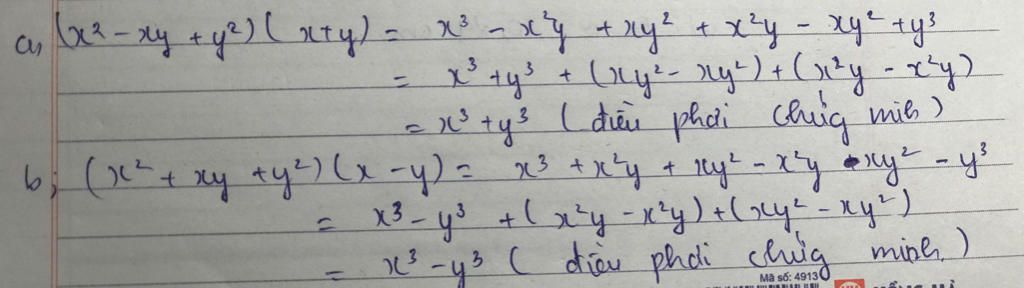 a, (x² - xy + y²)(x+y) = x³ - x²y + xy² + x²y - xy² + y³
= x³ + y³ + (xy² - xy²) + (x²y - x²y)
= x³ + y³ (điều phải chứng mih)
b, (x² + xy + y²)(x - y) = x³ + x²y + xy² - x²y - xy² - y³
= x³ - y³ + (x²y - x²y) + (xy² - xy²)
= x³ - y³ (điều phải chứng minh)
Mã số: 4913